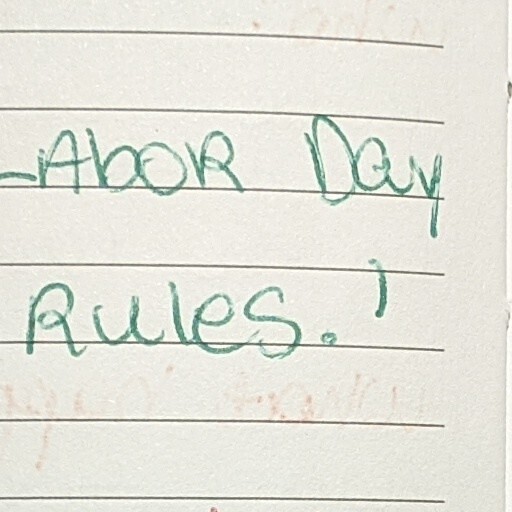 LAbOR Day
Rules.!